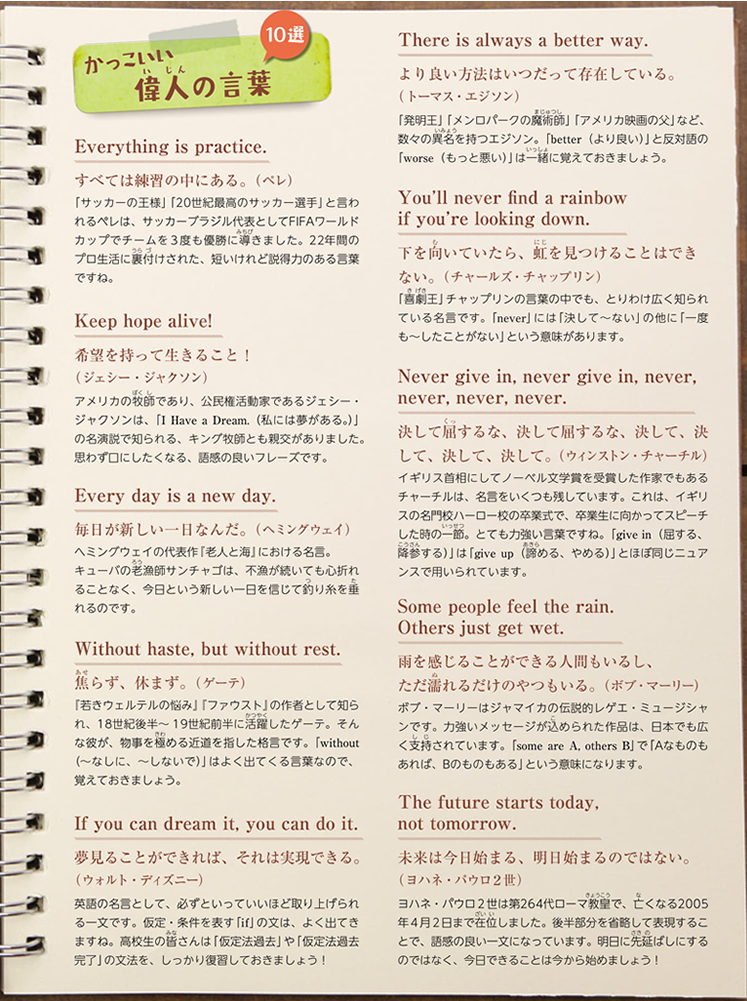 かっこいい
偉人の言葉
10選
Everything is practice.
すべては練習の中にある。（ペレ）
「サッカーの王様」「20世紀最高のサッカー選手」と言わ
れるペレは、サッカーブラジル代表としてFIFAワールド
カップでチームを３度も優勝に導きました。22年間の
プロ生活に裏付けされた、短いけれど説得力のある言葉
ですね。
Keep hope alive!
希望を持って生きること！
（ジェシー・ジャクソン）
アメリカの牧師であり、公民権活動家であるジェシー・
ジャクソンは、「I Have a Dream.（私には夢がある。）」
の名演説で知られる、キング牧師とも親交がありました。
思わず口にしたくなる、語感の良いフレーズです。
Every day is a new day.
毎日が新しい一日なんだ。（ヘミングウェイ）
ヘミングウェイの代表作『老人と海』における名言。
キューバの老漁師サンチャゴは、不漁が続いても心折れ
ることなく、今日という新しい一日を信じて釣り糸を垂
れるのです。
Without haste, but without rest.
焦らず、休まず。（ゲーテ）
『若きウェルテルの悩み』『ファウスト』の作者として知ら
れ、18世紀後半〜19世紀前半に活躍したゲーテ。そん
な彼が、物事を極める近道を指した格言です。「without
（〜なしに、〜しないで）」はよく出てくる言葉なので、
覚えておきましょう。
If you can dream it, you can do it.
夢見ることができれば、それは実現できる。
（ウォルト・ディズニー）
英語の名言として、必ずといっていいほど取り上げられ
る一文です。仮定・条件を表す「if」の文は、よく出てき
ますね。高校生の皆さんは「仮定法過去」や「仮定法過去
完了」の文法を、しっかり復習しておきましょう！
There is always a better way.
より良い方法はいつだって存在している。
（トーマス・エジソン）
「発明王」「メンロパークの魔術師」「アメリカ映画の父」など、
数々の異名を持つエジソン。「better（より良い）」と反対語の
「worse（もっと悪い）」は一緒に覚えておきましょう。
You'll never find a rainbow
if you're looking down.
下を向いていたら、虹を見つけることはでき
ない。（チャールズ・チャップリン）
「喜劇王」チャップリンの言葉の中でも、とりわけ広く知られ
ている名言です。「never」には「決して〜ない」の他に「一度
も〜したことがない」という意味があります。
Never give in, never give in, never,
never, never, never.
決して屈するな、決して屈するな、決して、決
して、決して、決して。（ウィンストン・チャーチル）
イギリス首相にしてノーベル文学賞を受賞した作家でもある
チャーチルは、名言をいくつも残しています。これは、イギリ
スの名門校ハーロー校の卒業式で、卒業生に向かってスピーチ
した時の一節。とても力強い言葉ですね。「give in（屈する、
降参する）」は「give up（諦める、やめる）」とほぼ同じニュア
ンスで用いられています。
Some people feel the rain.
Others just get wet.
雨を感じることができる人間もいるし、
ただ濡れるだけのやつもいる。（ボブ・マーリー）
ボブ・マーリーはジャマイカの伝説的レゲエ・ミュージシャ
ンです。力強いメッセージが込められた作品は、日本でも広
く支持されています。「some are A, others B」で「Aなものも
あれば、Bのものもある」という意味になります。
The future starts today,
not tomorrow.
未来は今日始まる、明日始まるのではない。
（ヨハネ・パウロ２世）
ヨハネ・パウロ２世は第264代ローマ教皇で、亡くなる2005
年４月２日まで在位しました。後半部分を省略して表現するこ
とで、語感の良い一文になっています。明日に先延ばしにする
のではなく、今日できることは今から始めましょう！